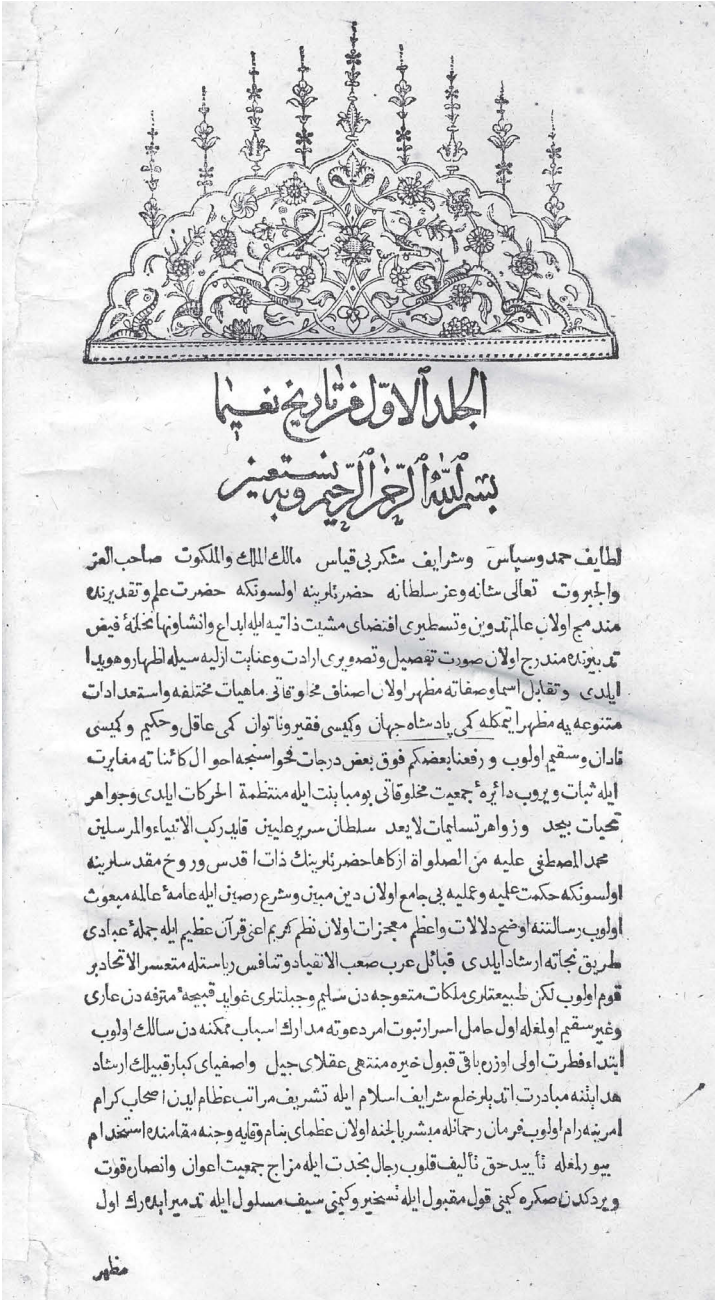 الجلد الاول من تاريخ نعيما
بسم الله الرحمن الرحيم وبه نستعين
لطايف حمد وسپاس وشرايف شكر بى قياس مالك الملك والملكوت صاحب العز
والجبروت تعالى شانه وعز سلطانه حضرتلرينه اولسونكه حضرت علم وتقديرنده
مندمج اولان عالم تدوين وتسطيرى اقتضاى مشيت ذاتيه ايله ابداع وانشا ونهانخانهٔ فيض
تدبيرنده مندرج اولان صورت تفصيل وتصويرى ارادت وعنايت ازليه سيله اظهار وهويدا
ايلدى وتقابل اسما وصفاته مظهر اولان اصناف مخلوقاتى ماهيات مختلفه واستعدادات
متنوعه يه مظهر ايتمكله كمى پادشاه جهان وكميسى فقير وناتوان كمى عاقل وحكيم وكميسى
نادان وسقيم اولوب ورفعنا بعضكم فوق بعض درجات فحواسنجه احوال كائناته مغايرت
ايله ثبات ويروب دائرهٔ جمعيت مخلوقاتى بو مباينت ايله منتظمة الحركات ايلدى وجواهر
تحيات بيحد وزواهر تسليمات لايعد سلطان سرير عليين قايد ركب الانبياء والمرسلين
محمد المصطفى عليه من الصلواة ازكاها حضرتلرينك ذات اقدس وروح مقدسلرينه
اولسونكه حكمت علميه وعمليه يى جامع اولان دين مبين وشرع رصين ايله عامهٔ عالمه مبعوث
اولوب رسالتنه اوضح دلالات واعظم معجزات اولان نظم كريم اعنى قرآن عظيم ايله جملهٔ عبادى
طريق نجاته ارشاد ايلدى قبائل عرب صعب الانقياد وتنافس رياستله متعسر الاتحاد بر
قوم اولوب لكن طبيعتلرى ملكات متعوجه دن سليم وجبلتلرى عوايد قبيحهٔ مترفه دن عارى
وغير سقيم اولمغله اول حامل اسرار نبوت امر دعوته مدارك اسباب ممكنه دن سالك اولوب
ابتداء فطرت اولى اوزره باقى قبول خيره منتهى عقلاى جيل واصفياى كبار قبيلك ارشاد
هدايتنه مبادرت اتديلر خلع شرايف اسلام ايله تشريف مراتب عظام ايدن اصحاب كرام
امرينه رام اولوب فرمان رحمانله مبشر بالجنه اولان عظماى بنام وقايه وجنه مقامنده استخدام
بيورلمغله تأييد حق تأليف قلوب رجال بخدت ايله مزاج جمعيت اعوان وانصاره قوت
ويردكدن صكره كيمنى قول مقبول ايله تسخير وكيمنى سيف مسلول ايله تدمير ايده رك اول
مظهر